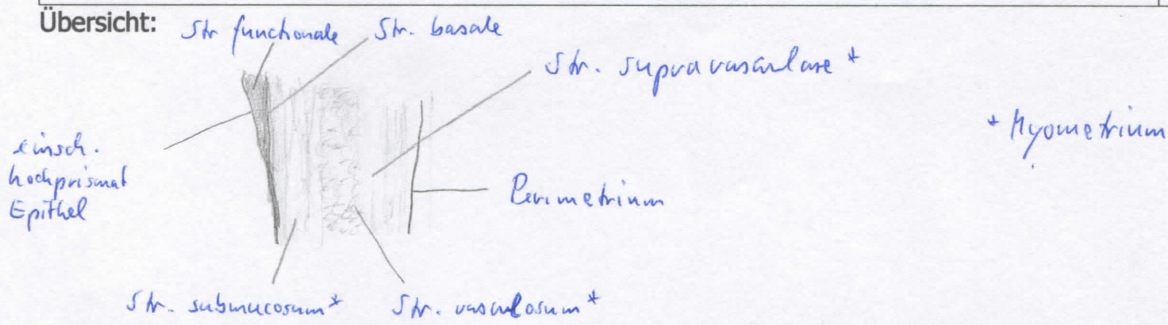 Übersicht:
Str functionale
Str. basale
Str. supravasculare *
* Myometrium
einsch.
hochprismat
Epithel
Perimetrium
Str. submucosum *
Str. vasculosum *